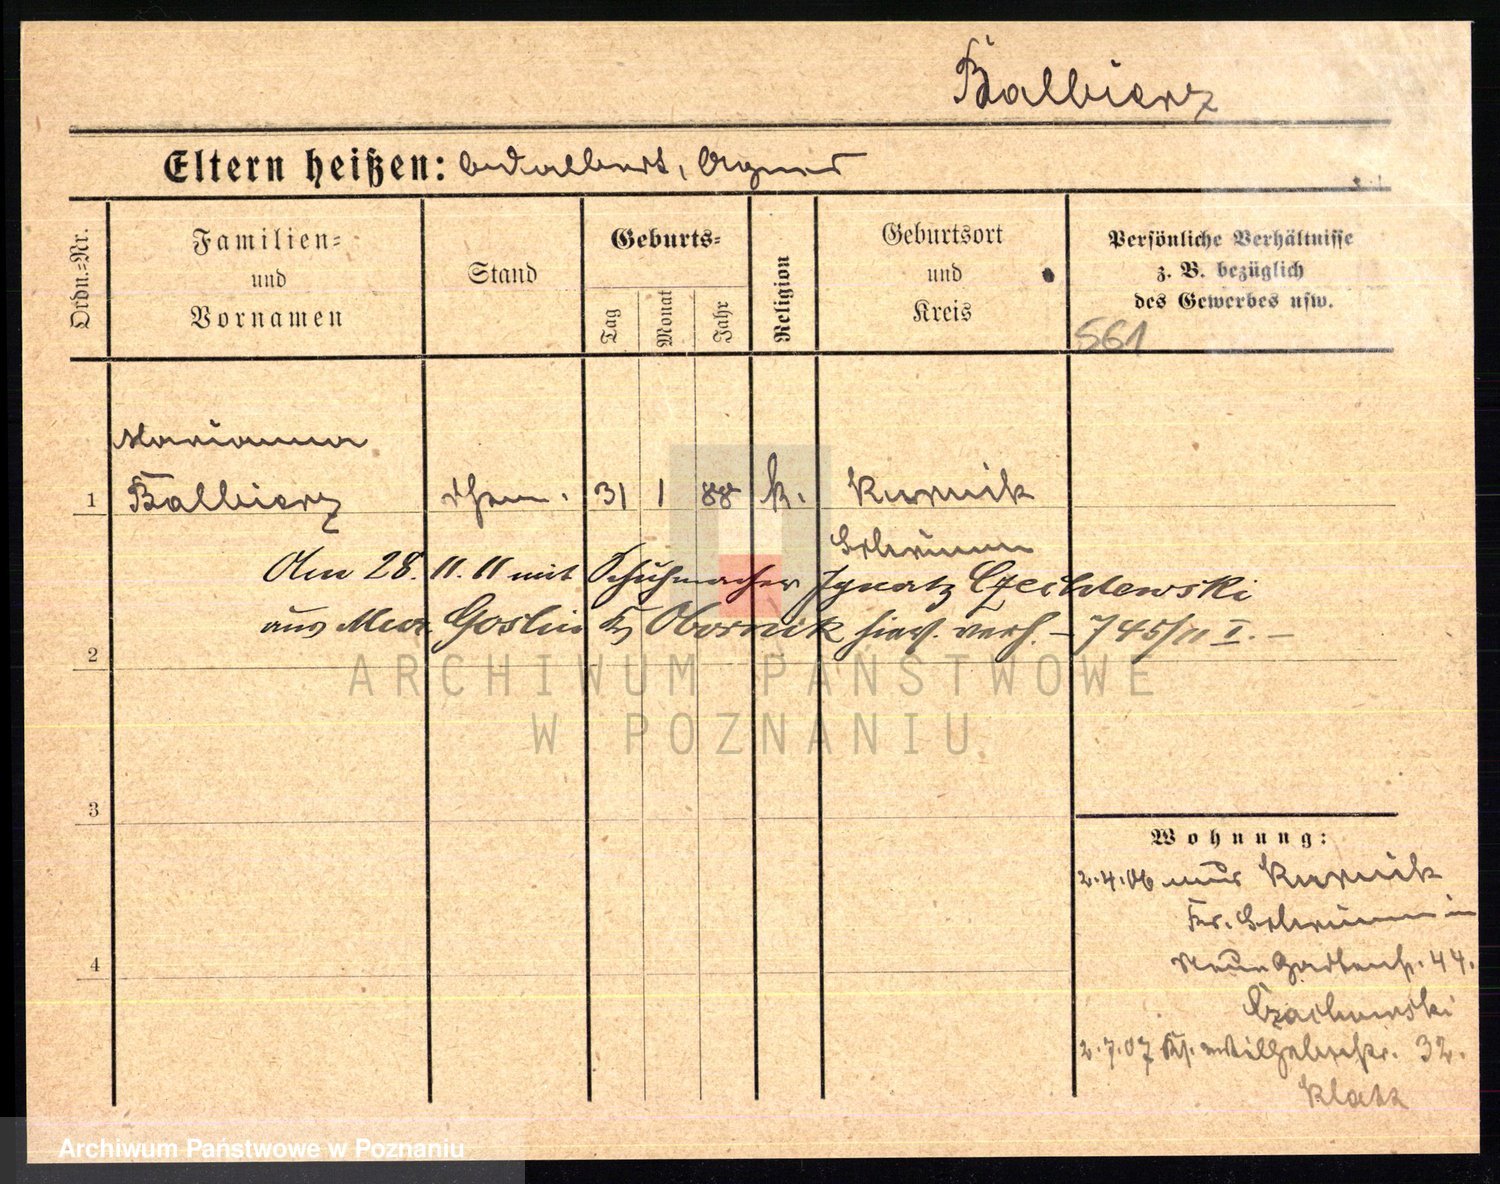 Balbierz
Eltern heißen: Adalbert, Agnes
Ordn.-Nr.
Familien- und Vornamen
Stand
Geburts-
Tag
Monat
Jahr
Religion
Geburtsort und Kreis
Persönliche Verhältnisse
z. B. bezüglich
des Gewerbes usw.
561
Marianna
1 Balbierz 31 1 88 k. Kurnik
Schrimm
Am 28. 11. 11 mit Schuhmacher Ignatz
aus Mur. Goslin Kr. Obornik hies. verh. – 745/11 I. –
2
3
4
Wohnung:
2.4.06 aus Kurnik
Kr. Schrimm in
Neue Gartenstr. 44.
2.7.07 Wilhelmstr. 32.
ARCHIWUM PAŃSTWOWE
W POZNANIU
Archiwum Państwowe w Poznaniu